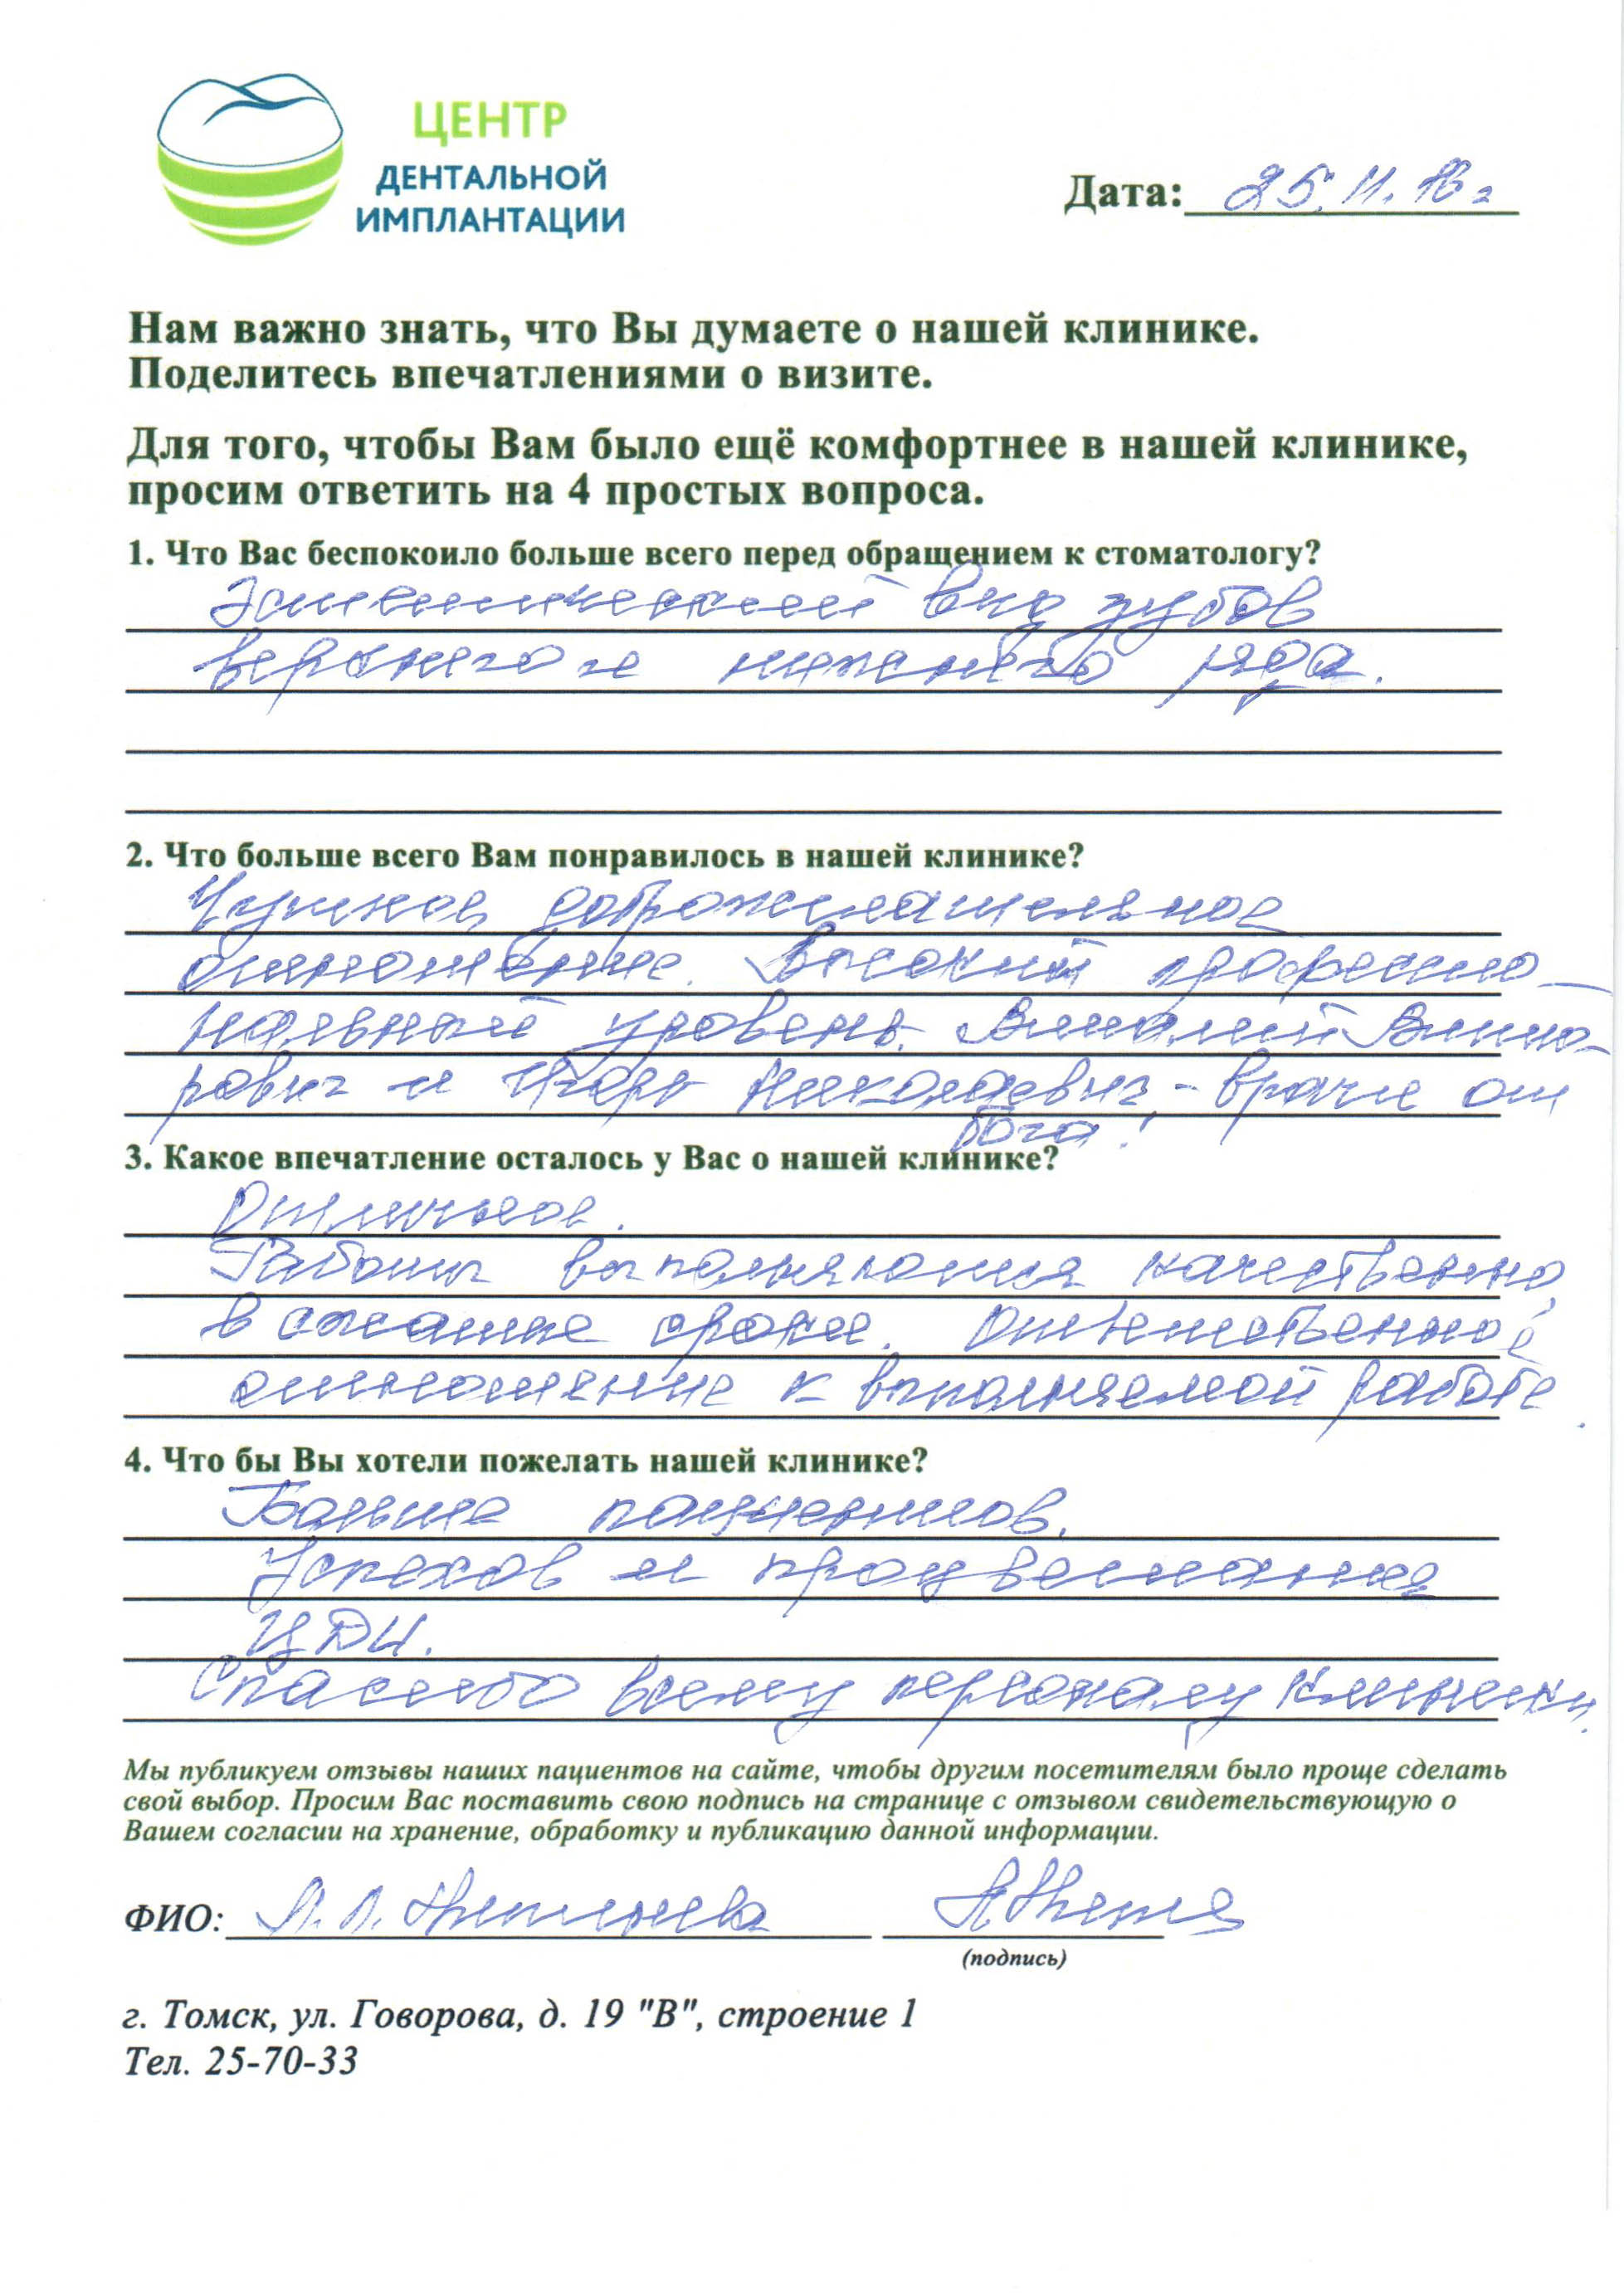 ЦЕНТР
ДЕНТАЛЬНОЙ
ИМПЛАНТАЦИИ
Дата: 25.11.16 г
Нам важно знать, что Вы думаете о нашей клинике.
Поделитесь впечатлениями о визите.
Для того, чтобы Вам было ещё комфортнее в нашей клинике,
просим ответить на 4 простых вопроса.
1. Что Вас беспокоило больше всего перед обращением к стоматологу?
Эстетический вид зубов
верхнего и нижнего ряда.
2. Что больше всего Вам понравилось в нашей клинике?
Чуткое, доброжелательное
отношение. Высокий профессио-
нальный уровень. Виталий Викто-
рович и Игорь Николаевич - врачи от
бога!
3. Какое впечатление осталось у Вас о нашей клинике?
Отличное.
Работы выполняются качественно,
в сжатые сроки. Ответственное
отношение к выполняемой работе.
4. Что бы Вы хотели пожелать нашей клинике?
Больше пациентов.
Успехов и процветания
ЦДИ.
Спасибо всему персоналу клиники.
Мы публикуем отзывы наших пациентов на сайте, чтобы другим посетителям было проще сделать
свой выбор. Просим Вас поставить свою подпись на странице с отзывом свидетельствующую о
Вашем согласии на хранение, обработку и публикацию данной информации.
ФИО:
(подпись)
г. Томск, ул. Говорова, д. 19 "В", строение 1
Тел. 25-70-33